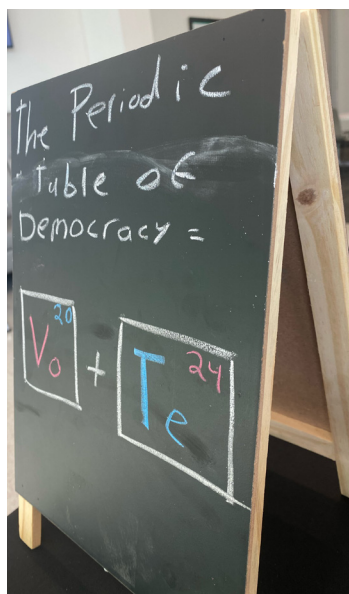 The Periodic
Table of
Democracy =
Vo 20 + Te 24